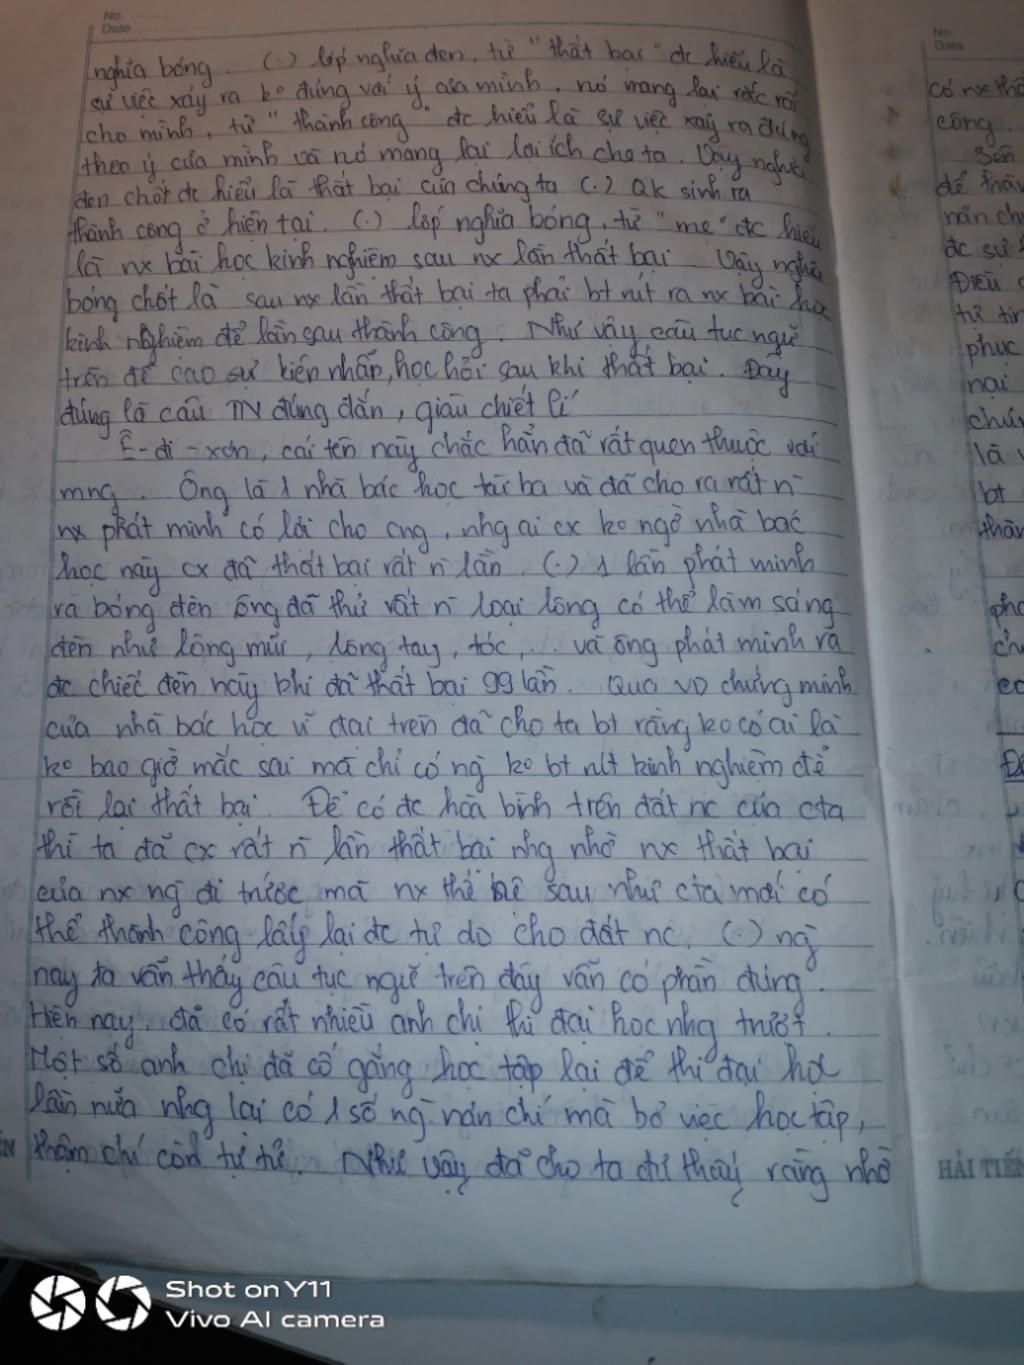 No. ...........
Date ...................
nghĩa bóng. (.) lớp nghĩa đen, từ "thất bại" đc hiểu là
sự việc xảy ra ko đúng với ý của mình, nó mang lại rắc rối
cho mình, từ "thành công" đc hiểu là sự việc xảy ra đúng
theo ý của mình và nó mang lại lợi ích cho ta. Vậy nghĩa
đen chốt đc hiểu là thất bại của chúng ta (.) qk sinh ra
thành công ở hiện tại. (.) lớp nghĩa bóng, từ "mẹ" đc hiểu
là nx bài học kinh nghiệm sau nx lần thất bại. Vậy nghĩa
bóng chốt là sau nx lần thất bại ta phải bt rút ra nx bài học
kinh nghiệm để lần sau thành công. Như vậy câu tục ngữ
trên đề cao sự kiên nhẫn, học hỏi sau khi thất bại. Đây
đúng là câu TN đúng đắn, giàu chiết lí
Ê-đi-xơn, cái tên này chắc hẳn đã rất quen thuộc với
mng. Ông là 1 nhà bác học tài ba và đã cho ra rất n~
nx phát minh có lời cho cng, nhg ai cx ko ngờ nhà bác
học này cx đã thất bại rất n~ lần. (.) 1 lần phát minh
ra bóng đèn ông đã thử rất n~ loại lông có thể làm sáng
đèn như lông mũi, lông tay, tóc,... và ông phát minh ra
đc chiếc đèn này khi đã thất bại 99 lần. Qua VD chứng minh
của nhà bác học vĩ đại trên đã cho ta bt rằng ko có ai là
ko bao giờ mắc sai mà chỉ có ng~ ko bt rút kinh nghiệm để
rồi lại thất bại. Để có đc hoà bình trên đất nc của cta
thì ta đã cx rất n~ lần thất bại nhg nhờ nx thất bại
của nx ng đi trước mà nx thế hệ sau như cta mới có
thể thành công lấy lại đc tự do cho đất nc. (.) ng~
nay ta vẫn thấy câu tục ngữ trên đây vẫn có phần đúng.
Hiện nay, đã có rất nhiều anh chị thi đại học nhg trượt.
Một số anh chị đã cố gắng học tập lại để thi đại học
lần nữa nhg lại có 1 số ng~ nản chí mà bỏ việc học tập,
thậm chí còn tự tử. Như vậy đã cho ta thấy rằng nhờ
No.
Date
có nx
công.
để
nản
đc sự
Điều
tự tin
phục
nại
là
bt
HẢI TIẾN
Shot on Y11
Vivo AI camera